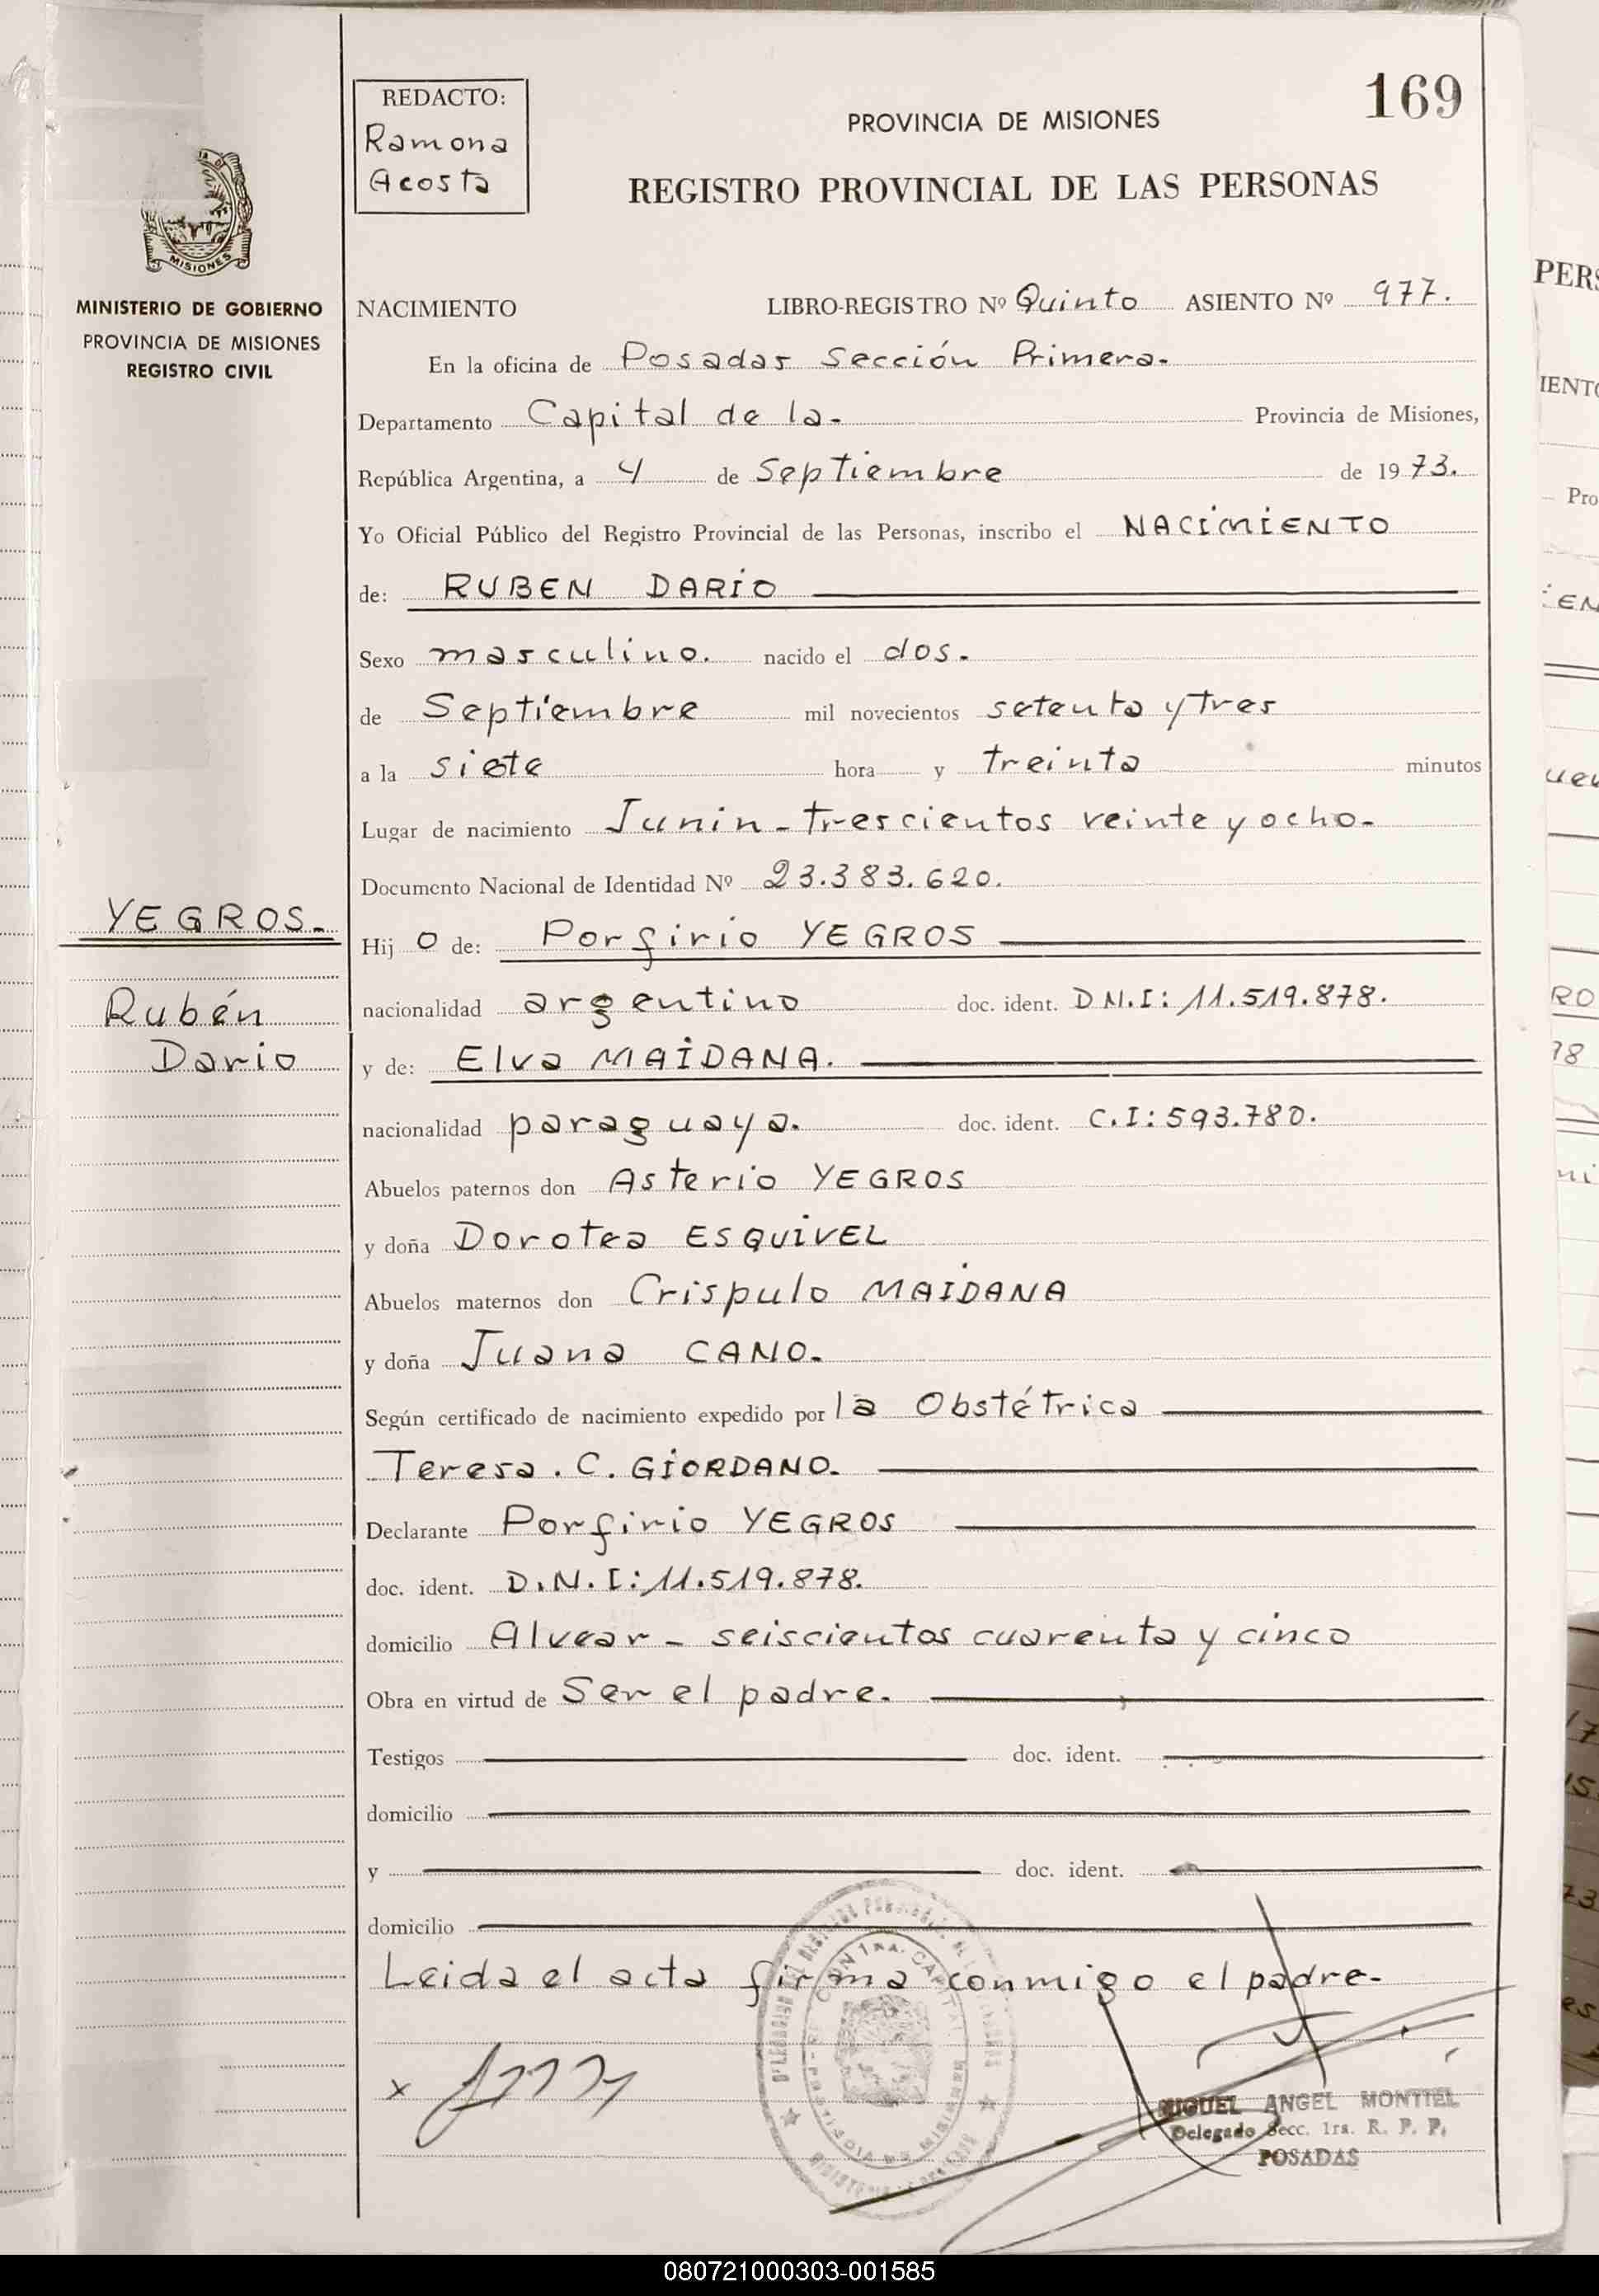 169
REDACTO:
Ramona
Acosta
PROVINCIA DE MISIONES
REGISTRO PROVINCIAL DE LAS PERSONAS
MISIONES
MINISTERIO DE GOBIERNO
PROVINCIA DE MISIONES
REGISTRO CIVIL
NACIMIENTO LIBRO-REGISTRO Nº Quinto ASIENTO Nº 977.
En la oficina de Posadas Sección Primera.
Departamento Capital de la. Provincia de Misiones,
República Argentina, a 4 de Septiembre de 1973.
Yo Oficial Público del Registro Provincial de las Personas, inscribo el NACIMIENTO
de: RUBEN DARIO
Sexo masculino. nacido el dos.
de Septiembre mil novecientos setenta y tres
a la siete hora y treinta minutos
Lugar de nacimiento Junin - trescientos veinte y ocho.
Documento Nacional de Identidad Nº 23.383.620.
YEGROS.
Rubén
Dario
Hij o de: Porfirio YEGROS
nacionalidad argentino doc. ident. D N.I: 11.519.878.
y de: Elva MAIDANA.
nacionalidad paraguaya. doc. ident. C.I: 593.780.
Abuelos paternos don Asterio YEGROS
y doña Dorotea ESQUIVEL
Abuelos maternos don Crispulo MAIDANA
y doña Juana CANO.
Según certificado de nacimiento expedido por la Obstétrica
Teresa. C. GIORDANO.
Declarante Porfirio YEGROS
doc. ident. D.N.I: 11.519.878.
domicilio Alvear - seiscientos cuarenta y cinco
Obra en virtud de Ser el padre.
Testigos doc. ident.
domicilio
y doc. ident.
domicilio
Leida el acta firma conmigo el padre.
x
MIGUEL ANGEL MONTIEL
Delegado Secc. 1ra. R. P. P.
POSADAS
080721000303-001585